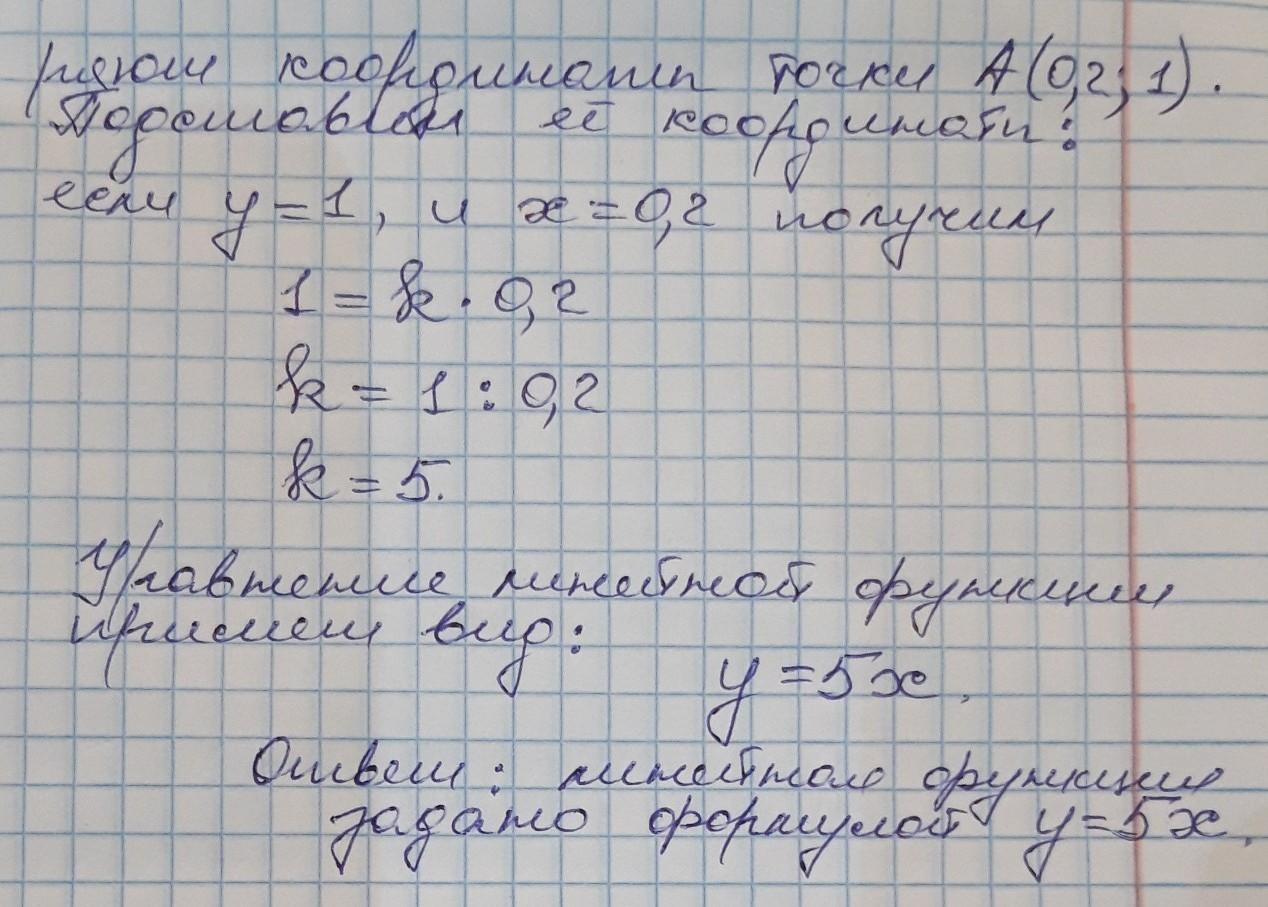 ряют координаты точки A(0,2; 1).
Подставим её координаты:
если y=1, и x=0,2 получим
1 = k · 0,2
k = 1 : 0,2
k = 5.
Уравнение линейной функции
примет вид:
y = 5x.
Ответ: линейная функция
задана формулой y=5x.